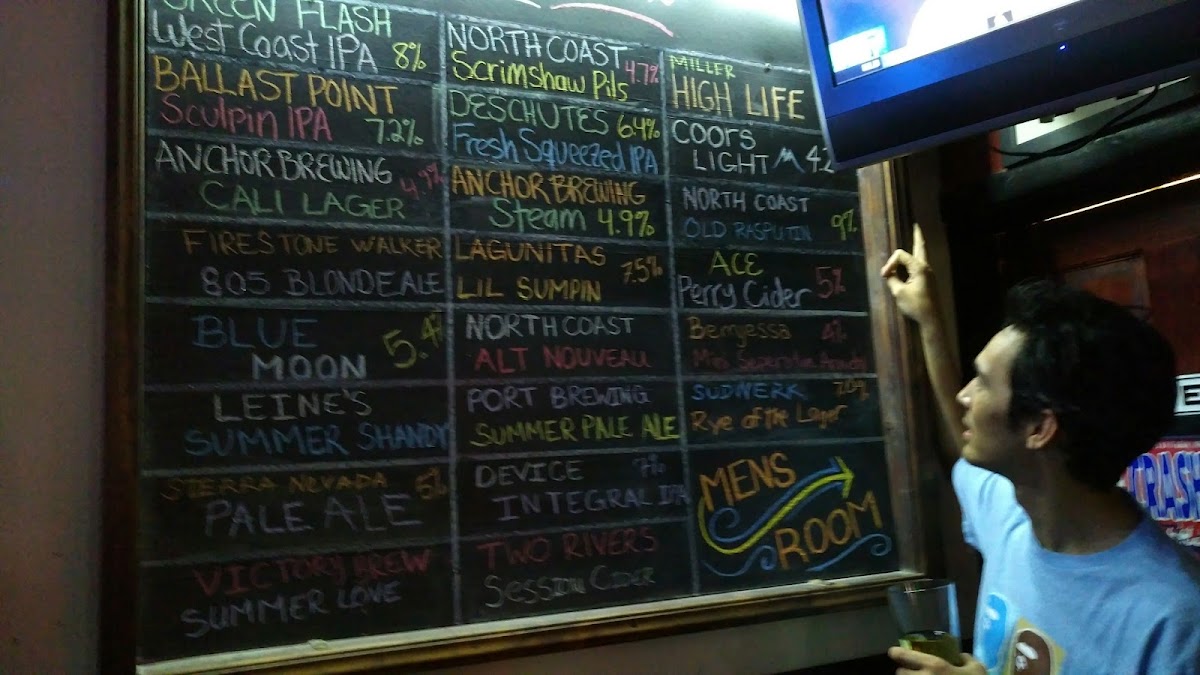 GREEN FLASH
West Coast IPA 8%
BALLAST POINT
Sculpin IPA 7.2%
ANCHOR BREWING 4.9%
CALI LAGER
FIRESTONE WALKER
805 BLONDE ALE
BLUE
MOON 5.4%
LEINE'S
SUMMER SHANDY
SIERRA NEVADA 5%
PALE ALE
VICTORY BREW
SUMMER LOVE
NORTH COAST
Scrimshaw Pils 4.7%
DESCHUTES 6.4%
Fresh Squeezed IPA
ANCHOR BREWING
Steam 4.9%
LAGUNITAS 7.5%
LIL SUMPIN
NORTH COAST
ALT NOUVEAU
PORT BREWING
SUMMER PALE ALE
DEVICE 7%
INTEGRAL IPA
TWO RIVERS
Session Cider
MILLER
HIGH LIFE
COORS
LIGHT 4.2
NORTH COAST
OLD RASPUTIN 9%
ACE
Perry Cider 5%
Berryessa 4%
Mini Separation Anxiety
SUDWERK
Rye of the Lager
MENS
ROOM